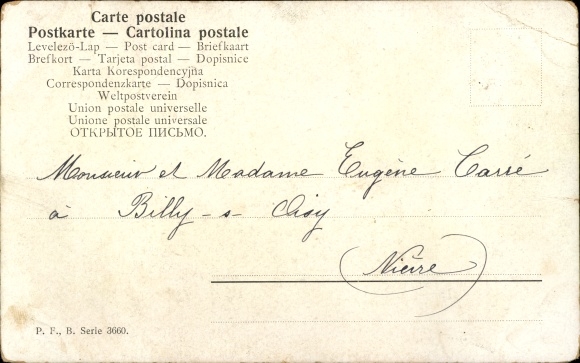 Carte postale
Postkarte — Cartolina postale
Levelezö-Lap — Post card — Briefkaart
Brefkort — Tarjeta postal — Dopisnice
Karta Korespondencyjna
Correspondenzkarte — Dopisnica
Weltpostverein
Union postale universelle
Unione postale universale
ОТКРЫТОЕ ПИСЬМО.
Monsieur et Madame Eugène Carré
à Billy - s - Oisy
(Nièvre)
P. F., B. Serie 3660.